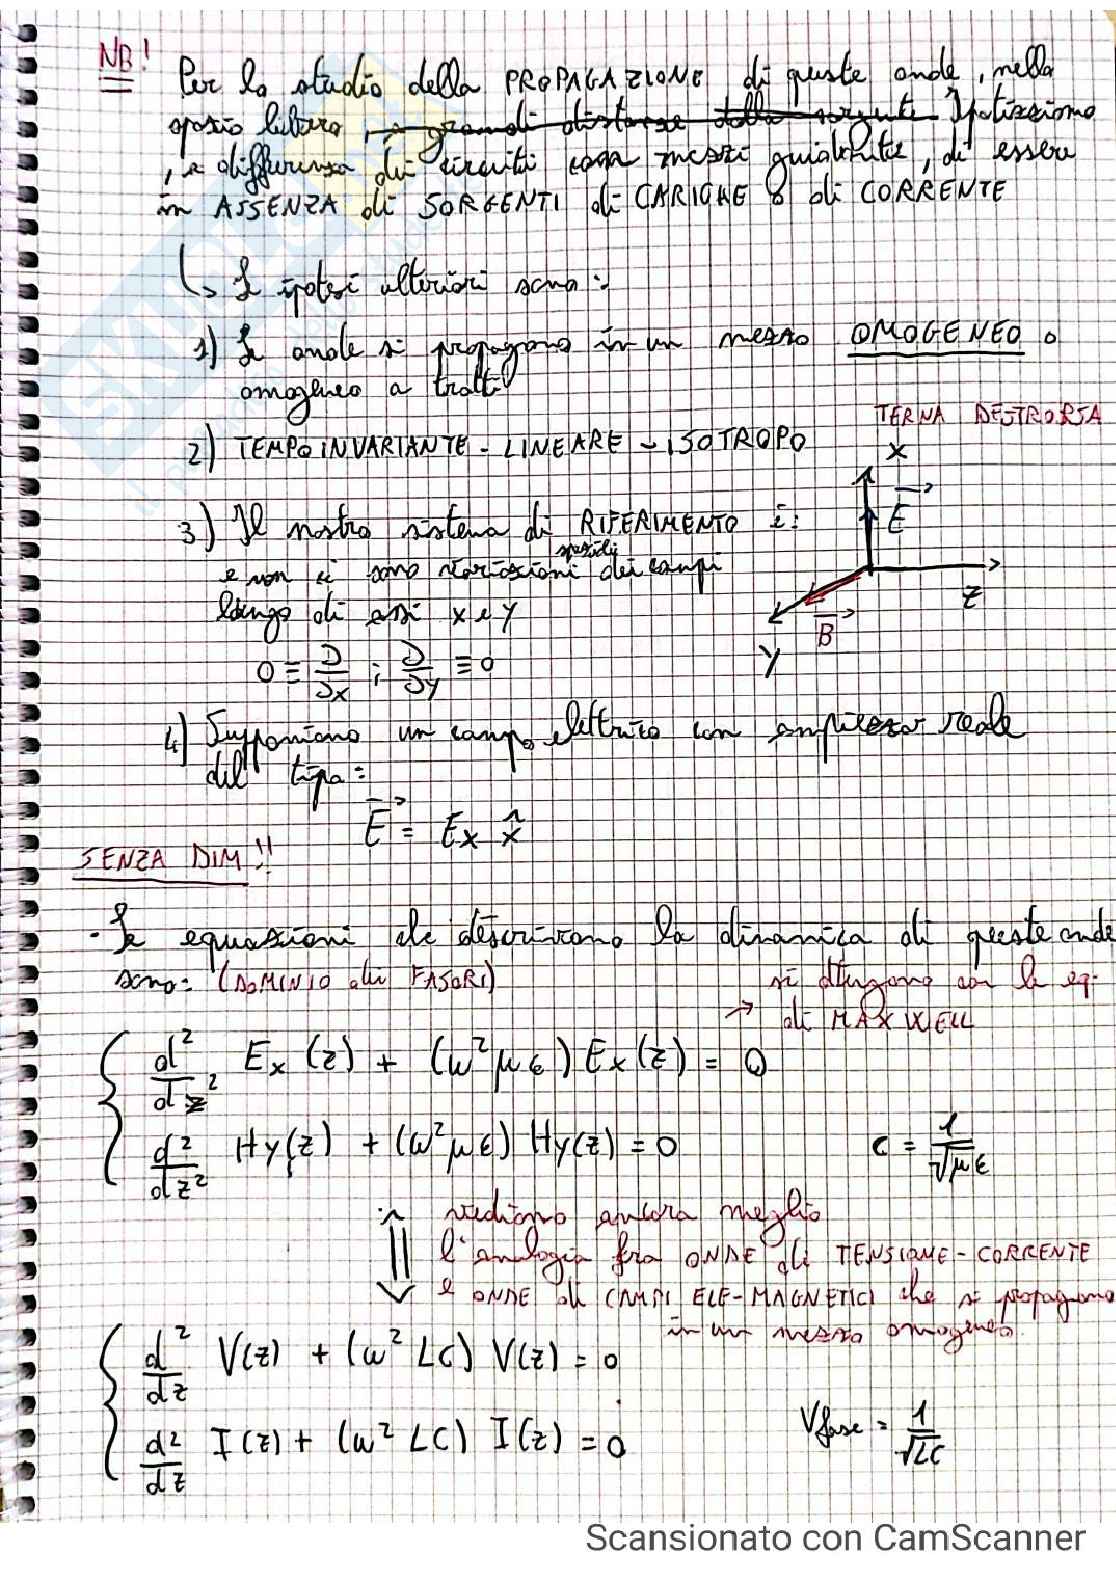 NB!
Per lo studio della PROPAGAZIONE di queste onde, nello
spazio libero, a grandi distanze dalla sorgente Ipotizziamo
, a differenza di circuiti con mezzi, di essere
in ASSENZA di SORGENTI di CARICHE o di CORRENTE
↳ Le ipotesi ulteriori sono:
1) Le onde si propagano in un mezzo OMOGENEO o
omogeneo a tratti
TERNA DESTRORSA
2) TEMPOINVARIANTE - LINEARE - ISOTROPO
X
3) Il nostro sistema di RIFERIMENTO è:
E
spaziali
e non ci sono variazioni dei campi
lungo gli assi x e y
Z
B
Y
0 ≡ ∂/∂x ; ∂/∂y ≡ 0
4) Supponiamo un campo elettrico con ampiezza reale
del tipo:
E = Ex x̂
SENZA DIM!!
- Le equazioni che descrivono la dinamica di queste onde
sono: (DOMINIO dei FASORI)
si ottengono con le eq.
→ di MAXWELL
d²/dz² Ex(z) + (ω²με) Ex(z) = 0
d²/dz² Hy(z) + (ω²με) Hy(z) = 0
c = 1/√με
vediamo ancora meglio
l'analogia fra ONDE di TENSIONE-CORRENTE
e ONDE di CAMPI ELE-MAGNETICI che si propagano
in un mezzo omogeneo.
d²/dz V(z) + (ω² LC) V(z) = 0
d²/dz I(z) + (ω² LC) I(z) = 0
Vfase = 1/√LC
Scansionato con CamScanner